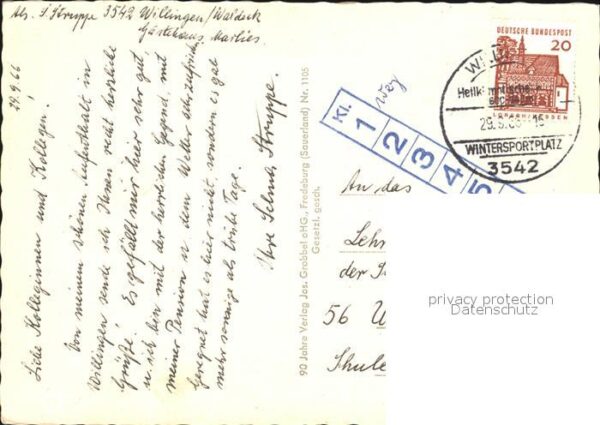 Abs. S. Struppe 3542 Willingen/Waldeck
Gästehaus Marlies
29.9.66
Liebe Kolleginnen und Kollegen.
Von meinem schönen Aufenthalt in
Willingen sende ich Ihnen recht herzliche
Grüße! Es gefällt mir hier sehr gut
u. ich bin mit der herrlichen Gegend, mit
meiner Pension u. dem Wetter sehr zufrieden.
Geregnet hat es hier nicht, sondern es gab
mehr sonnige als trübe Tage.
Ihre Selma Struppe.
90 Jahre Verlag Jos. Grobbel oHG., Fredeburg (Sauerland) Nr. 1105
Gesetzl. gesch.
Kl. 1 2 3 4 5
DEUTSCHE BUNDESPOST
20
LORSCH/HESSEN
Heilklimatischer
WINTERSPORTPLATZ
3542
An das
Lehr
der
56 W
Schule
privacy protection
Datenschutz